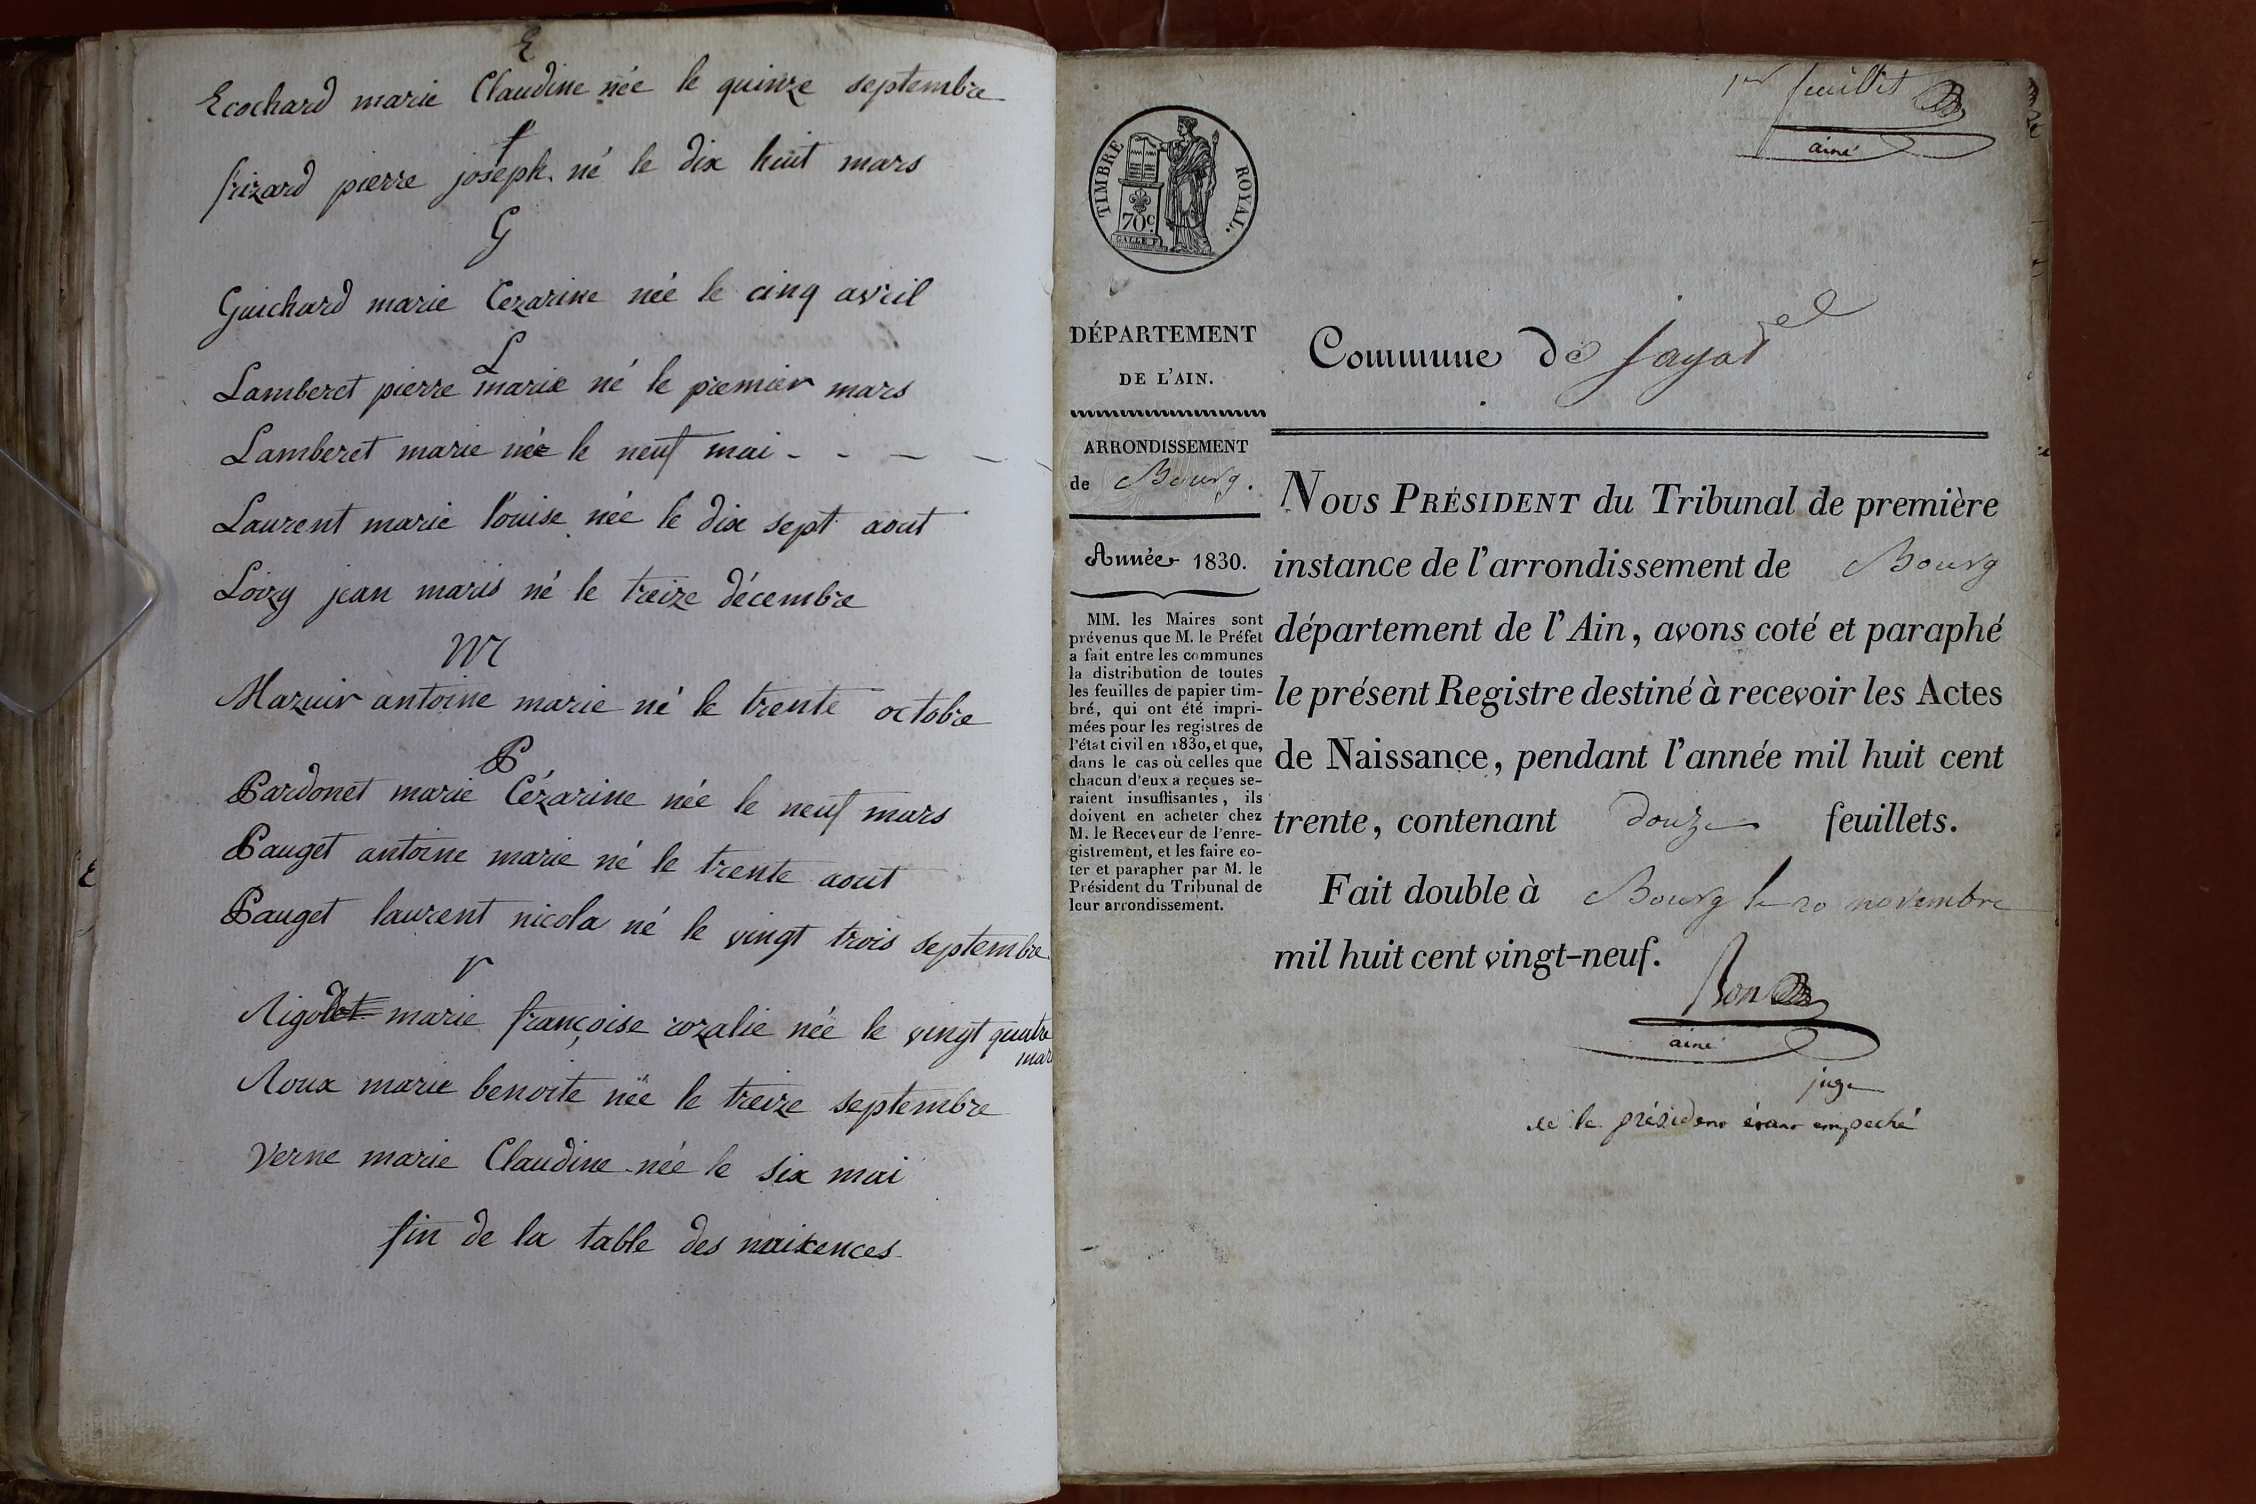 E
Ecochard marie Claudine née le quinze septembre
f
frizard pierre joseph né le dix huit mars
G
Guichard marie Cezarine née le cinq avril
L
Lamberet pierre marie né le premier mars
Lamberet marie née le neuf mai - - - -
Laurent marie louise née le dix sept aout
Loizy jean marie né le treize décembre
M
Mazuir antoine marie né le trente octobre
P
Pardonet marie Cézarine née le neuf mars
Pauget antoine marie né le trente aout
Pauget laurent nicola né le vingt trois septembre
r
marie françoise rozalie née le vingt quatre
mar
Roux marie benoite née le treize septembre
verne marie Claudine née le six mai
fin de la table des naixences
E
1er feuillet
ainé
TIMBRE ROYAL.
70c.
DÉPARTEMENT
DE L'AIN.
ARRONDISSEMENT
de Bourg.
Année 1830.
MM. les Maires sont
prévenus que M. le Préfet
a fait entre les communes
la distribution de toutes
les feuilles de papier tim-
bré, qui ont été impri-
mées pour les registres de
l'état civil en 1830, et que,
dans le cas où celles que
chacun d'eux a reçues se-
raient insuffisantes, ils
doivent en acheter chez
M. le Receveur de l'enre-
gistrement, et les faire co-
ter et parapher par M. le
Président du Tribunal de
leur arrondissement.
Commune de jayat
NOUS PRÉSIDENT du Tribunal de première
instance de l'arrondissement de Bourg
département de l'Ain, avons coté et paraphé
le présent Registre destiné à recevoir les Actes
de Naissance, pendant l'année mil huit cent
trente, contenant douze feuillets.
Fait double à Bourg le 20 novembre
mil huit cent vingt-neuf.
Bon
ainé
juge
le président étant empeché